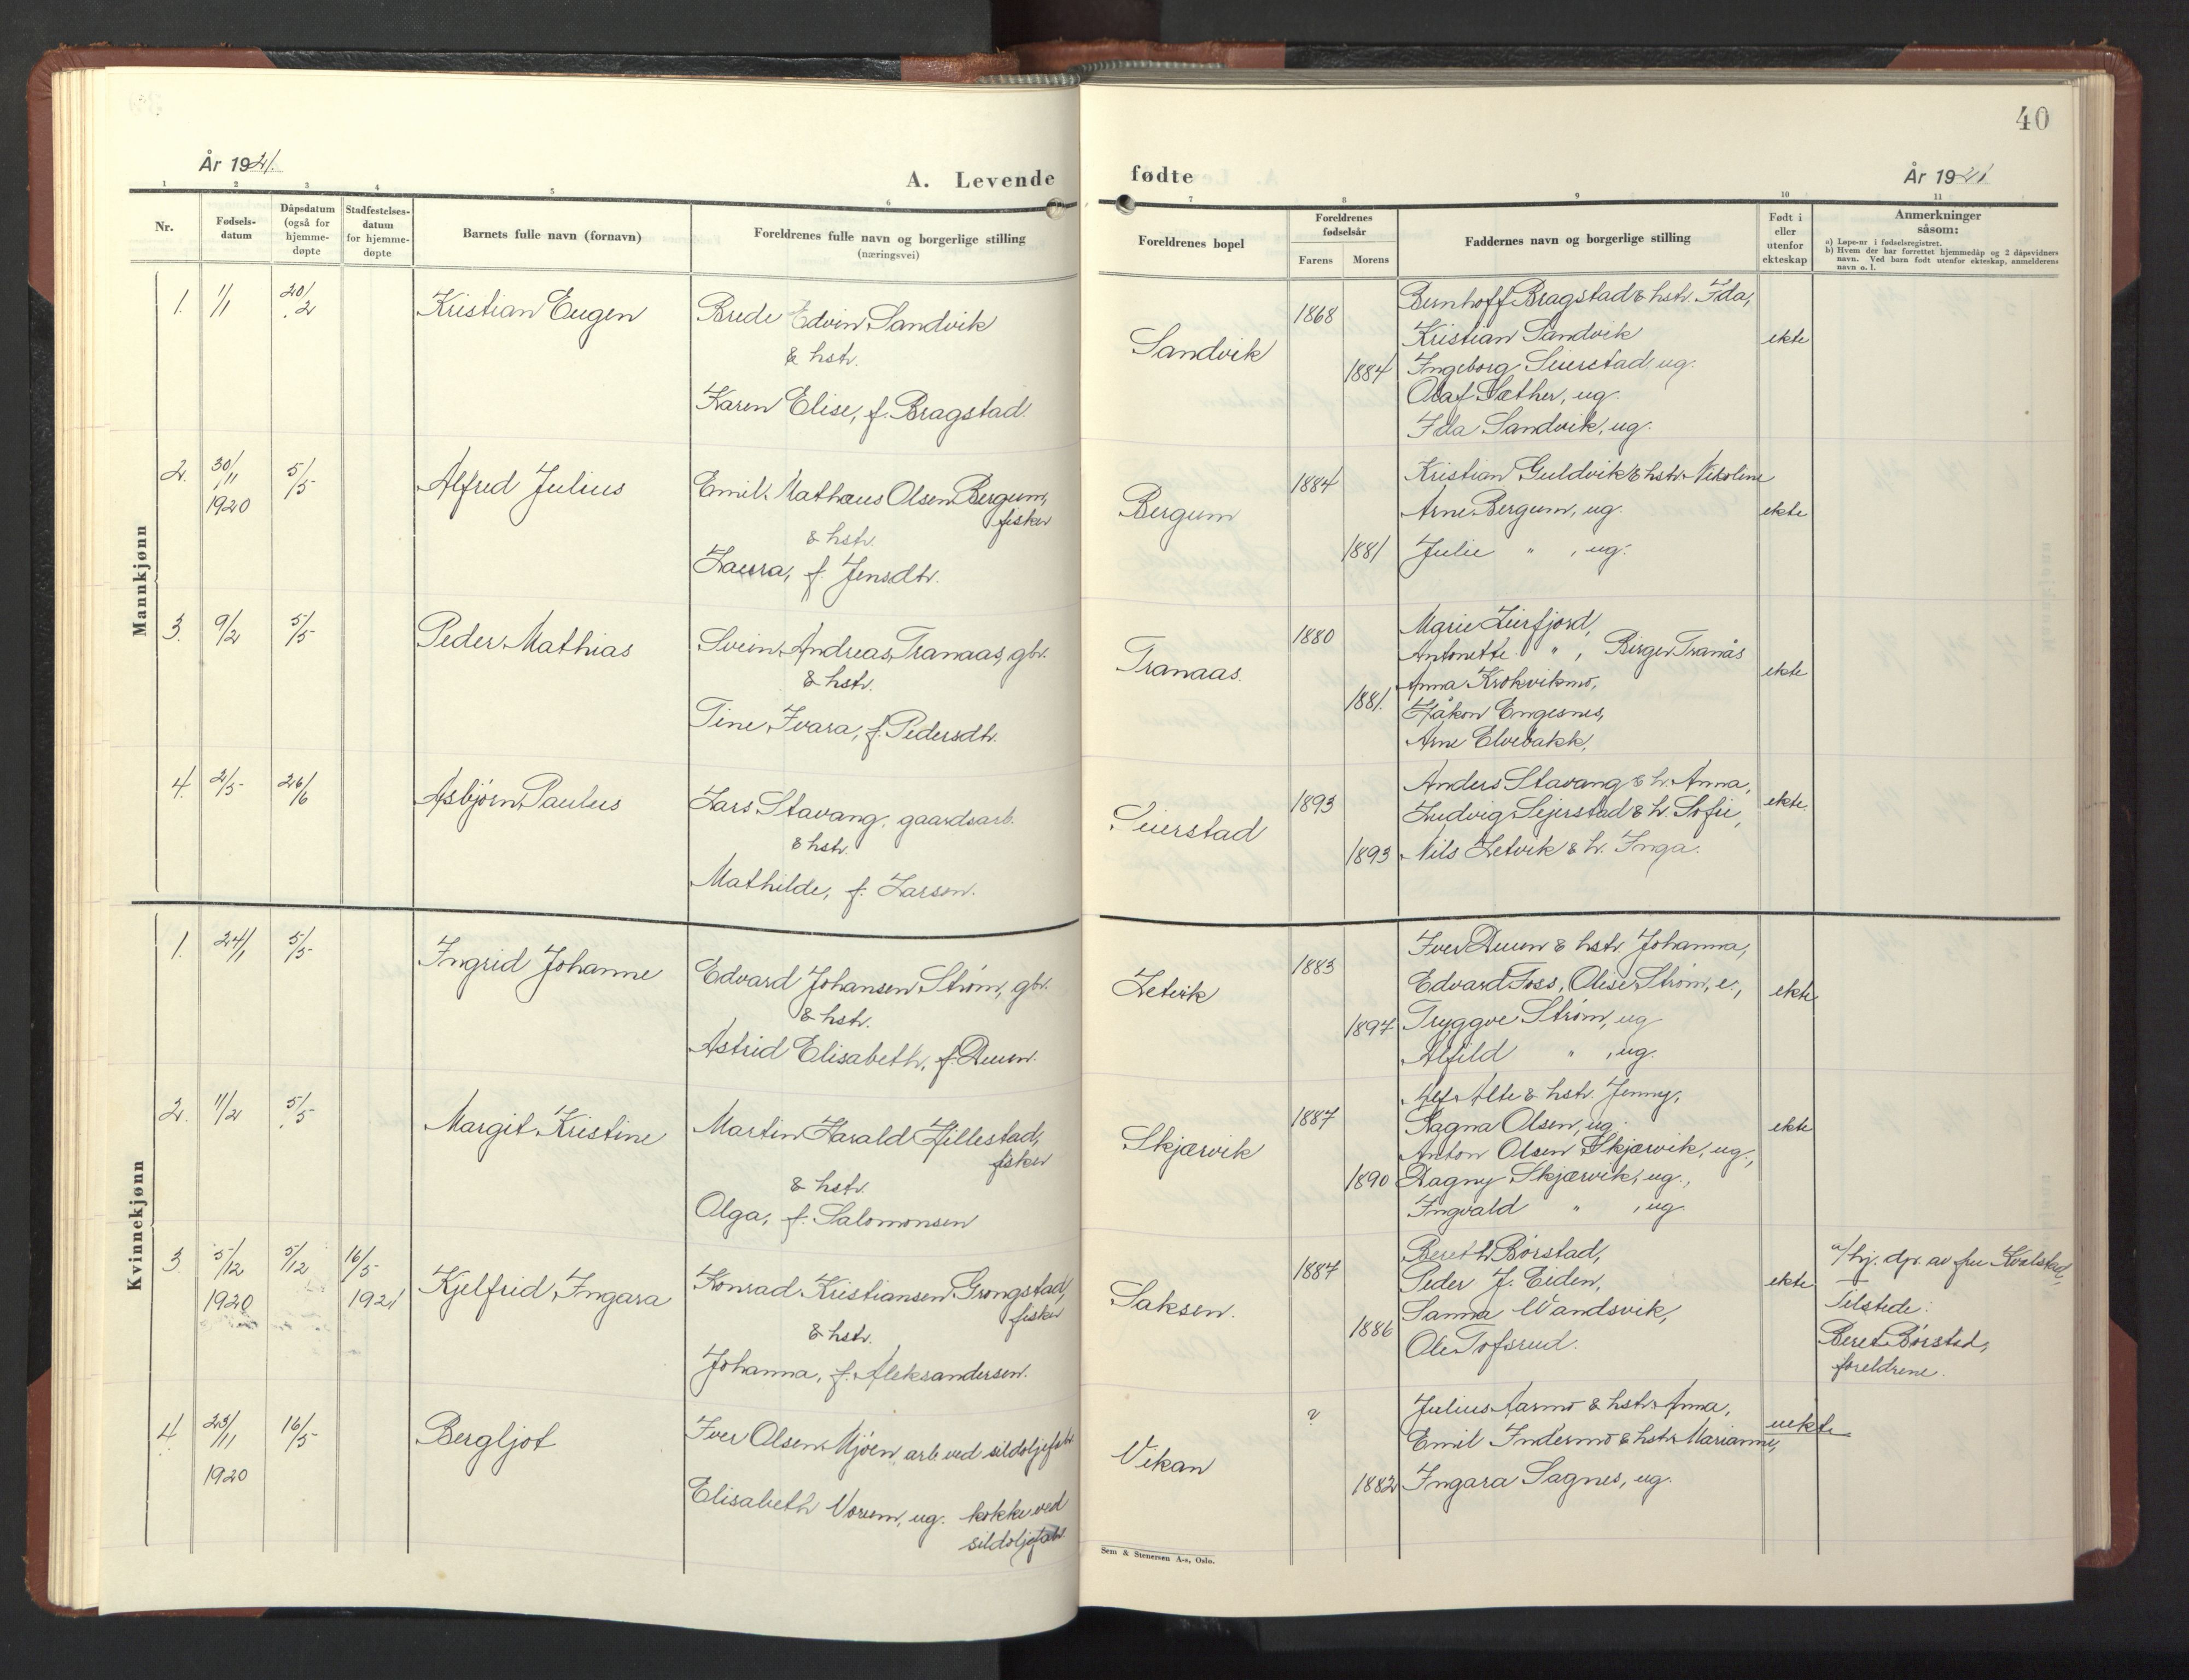 40
År 1921.
A. Levende
fødte
År 1921
1 2 3 4 5 6 7 8 9 10 11
Nr.
Fødsels-
datum
Dåpsdatum
(også for
hjemme-
døpte
Stadfestelses-
datum
for hjemme-
døpte
Barnets fulle navn (fornavn)
Foreldrenes fulle navn og borgerlige stilling
(næringsvei)
Foreldrenes bopel
Foreldrenes
fødselsår
Farens Morens
Faddernes navn og borgerlige stilling
Født i
eller
utenfor
ekteskap
Anmerkninger
såsom:
a) Løpe-nr i fødselsregistret.
b) Hvem der har forrettet hjemmedåp og 2 dåpsvidners
navn. Ved barn født utenfor ekteskap, anmelderens
navn o. l.
Mannkjønn
1. 1/1 20/2 Kristian Eugen
Brede Edvin Sandvik
& hstr.
Karen Elise, f. Bragstad.
Sandvik
1868
1884
Bernhoff Bragstad & hstr. Ida,
Kristian Sandvik
Ingeborg Seierstad, ug.
Olaf Sæther, ug.
Ida Sandvik, ug.
ekte
2. 30/11 1920 5/5 Alfred Julius
Emil Mathæus Olsen Bergum,
fisker
& hstr.
Laura, f. Jensdtr.
Bergum
1884
1881
Kristian Guldvik & hstr. Nikoline
Arne Bergum, ug.
Julie " , ug.
ekte
3. 9/2 5/5 Peder Mathias
Svein Andreas Tranaas, gbr.
& hstr.
Tine Ivara, f. Pedersdtr.
Tranaas.
1880
1881.
Marie Leirfjord,
Antonette " , Birger Tranås
Anna Krokvikmo,
Håkon Engesnes,
Arne Elvebakk,
ekte
4. 2/5 26/6 Asbjørn Paulus
Lars Stavang, gaardsarb.
& hstr.
Mathilde, f. Larsen.
Seierstad
1893
1893
Anders Stavang & h. Anna,
Ludvig Sejerstad & h. Sofie,
Nils Letvik & h. Inga.
ekte.
Kvinnekjønn
1. 24/1 5/5 Ingrid Johanne
Edvard Johansen Strøm, gbr.
& hstr.
Astrid Elisabeth, f. Duun.
Letvik
1883
1897
Iver Duun & hstr. Johanna,
Edvard Foss, Olise Strøm, e.,
Tryggve Strøm, ug
Alfild " , ug.
ekte
2. 11/2 5/5 Margit Kristine
Martin Harald Hillestad,
fisker
& hstr.
Olga, f. Salomonsen
Skjærvik
1887
1890
Alf Alte & hstr. Jenny,
Ragna Olsen, ug.
Anton Olsen Skjærvik, ug.,
Dagny Skjærvik, ug.,
Ingvald " , ug.
ekte
3. 5/12 1920 5/12 16/5 1921 Kjelfrid Ingara
Konrad Kristiansen Grongstad,
fisker
& hstr.
Johanna, f. Aleksandersen.
Saksen.
1887
1886
Bereth Børstad,
Peder J. Eiden,
Sanna Vandsvik,
Ole Tofsrud.
ekte
a/ hj. dpt. av fru Kvalstad,
Tilstede:
Beret Børstad,
foreldrene.
4. 23/11 1920 16/5 Bergljot
Iver Olsen Mjøen, arb. ved sildoljefabr.
Elisabeth Vorum, ug. kokke ved
sildoljefabr.
Vikan
?
1882
Julius Aarmo & hstr. Anna,
Emil Indermo & hstr. Marianne,
Ingara Sagnes, ug.
uekte
Sem & Stenersen A-s, Oslo.